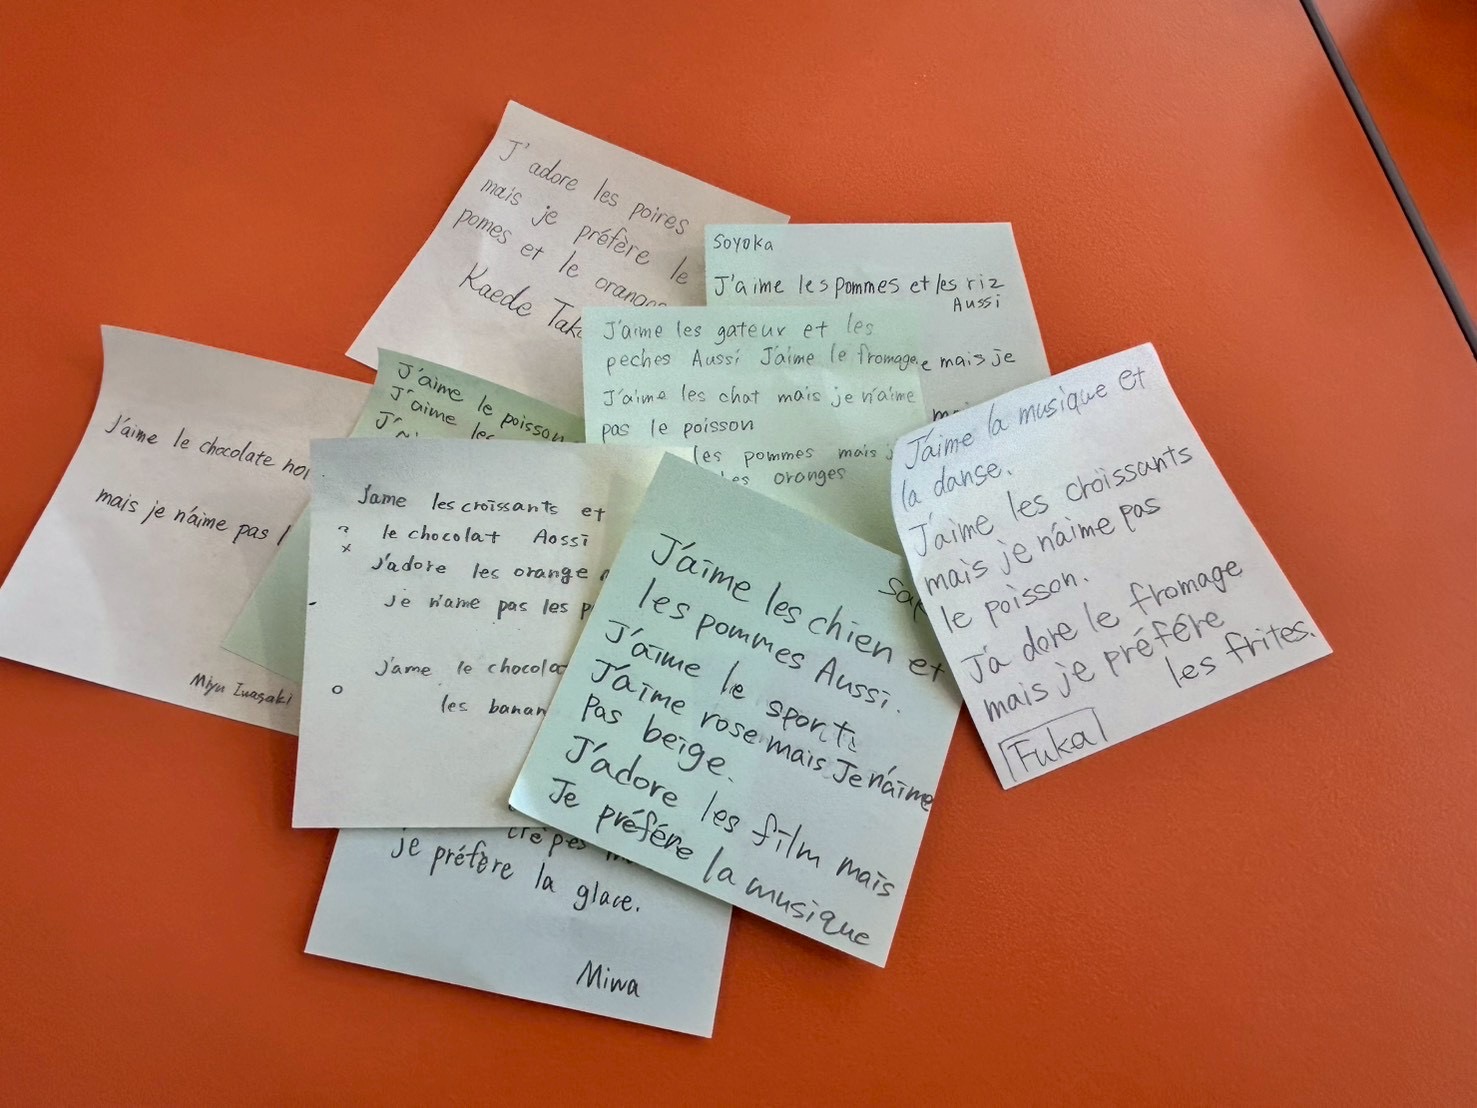 J'adore les poires
mais je préfère le
pomes et le oranges
Kaede
soyoka
J'aime les pommes et les riz
Aussi
mais je
J'aime les gateur et les
peches Aussi J'aime le fromage
J'aime les chat mais je n'aime
pas le poisson
les pommes mais
oranges
J'aime la musique et
la danse.
J'aime les croissants
mais je n'aime pas
le poisson.
J'a dore le fromage
mais je préfére
les frites.
Fuka
J'aime le chocolate
mais je n'aime pas
Miyu Iwasaki
J'aime le poisson
J'aime les
J'ame les croissants et
le chocolat Aossi
J'adore les orange
Je n'ame pas les
J'ame le chocolat
les banan
J'aime les chien et
les pommes Aussi.
J'aime le sports
J'aime rose mais Je n'aime
pas beige.
J'adore les film mais
Je préfére la musique
crêpes
je préfère la glace.
Miwa